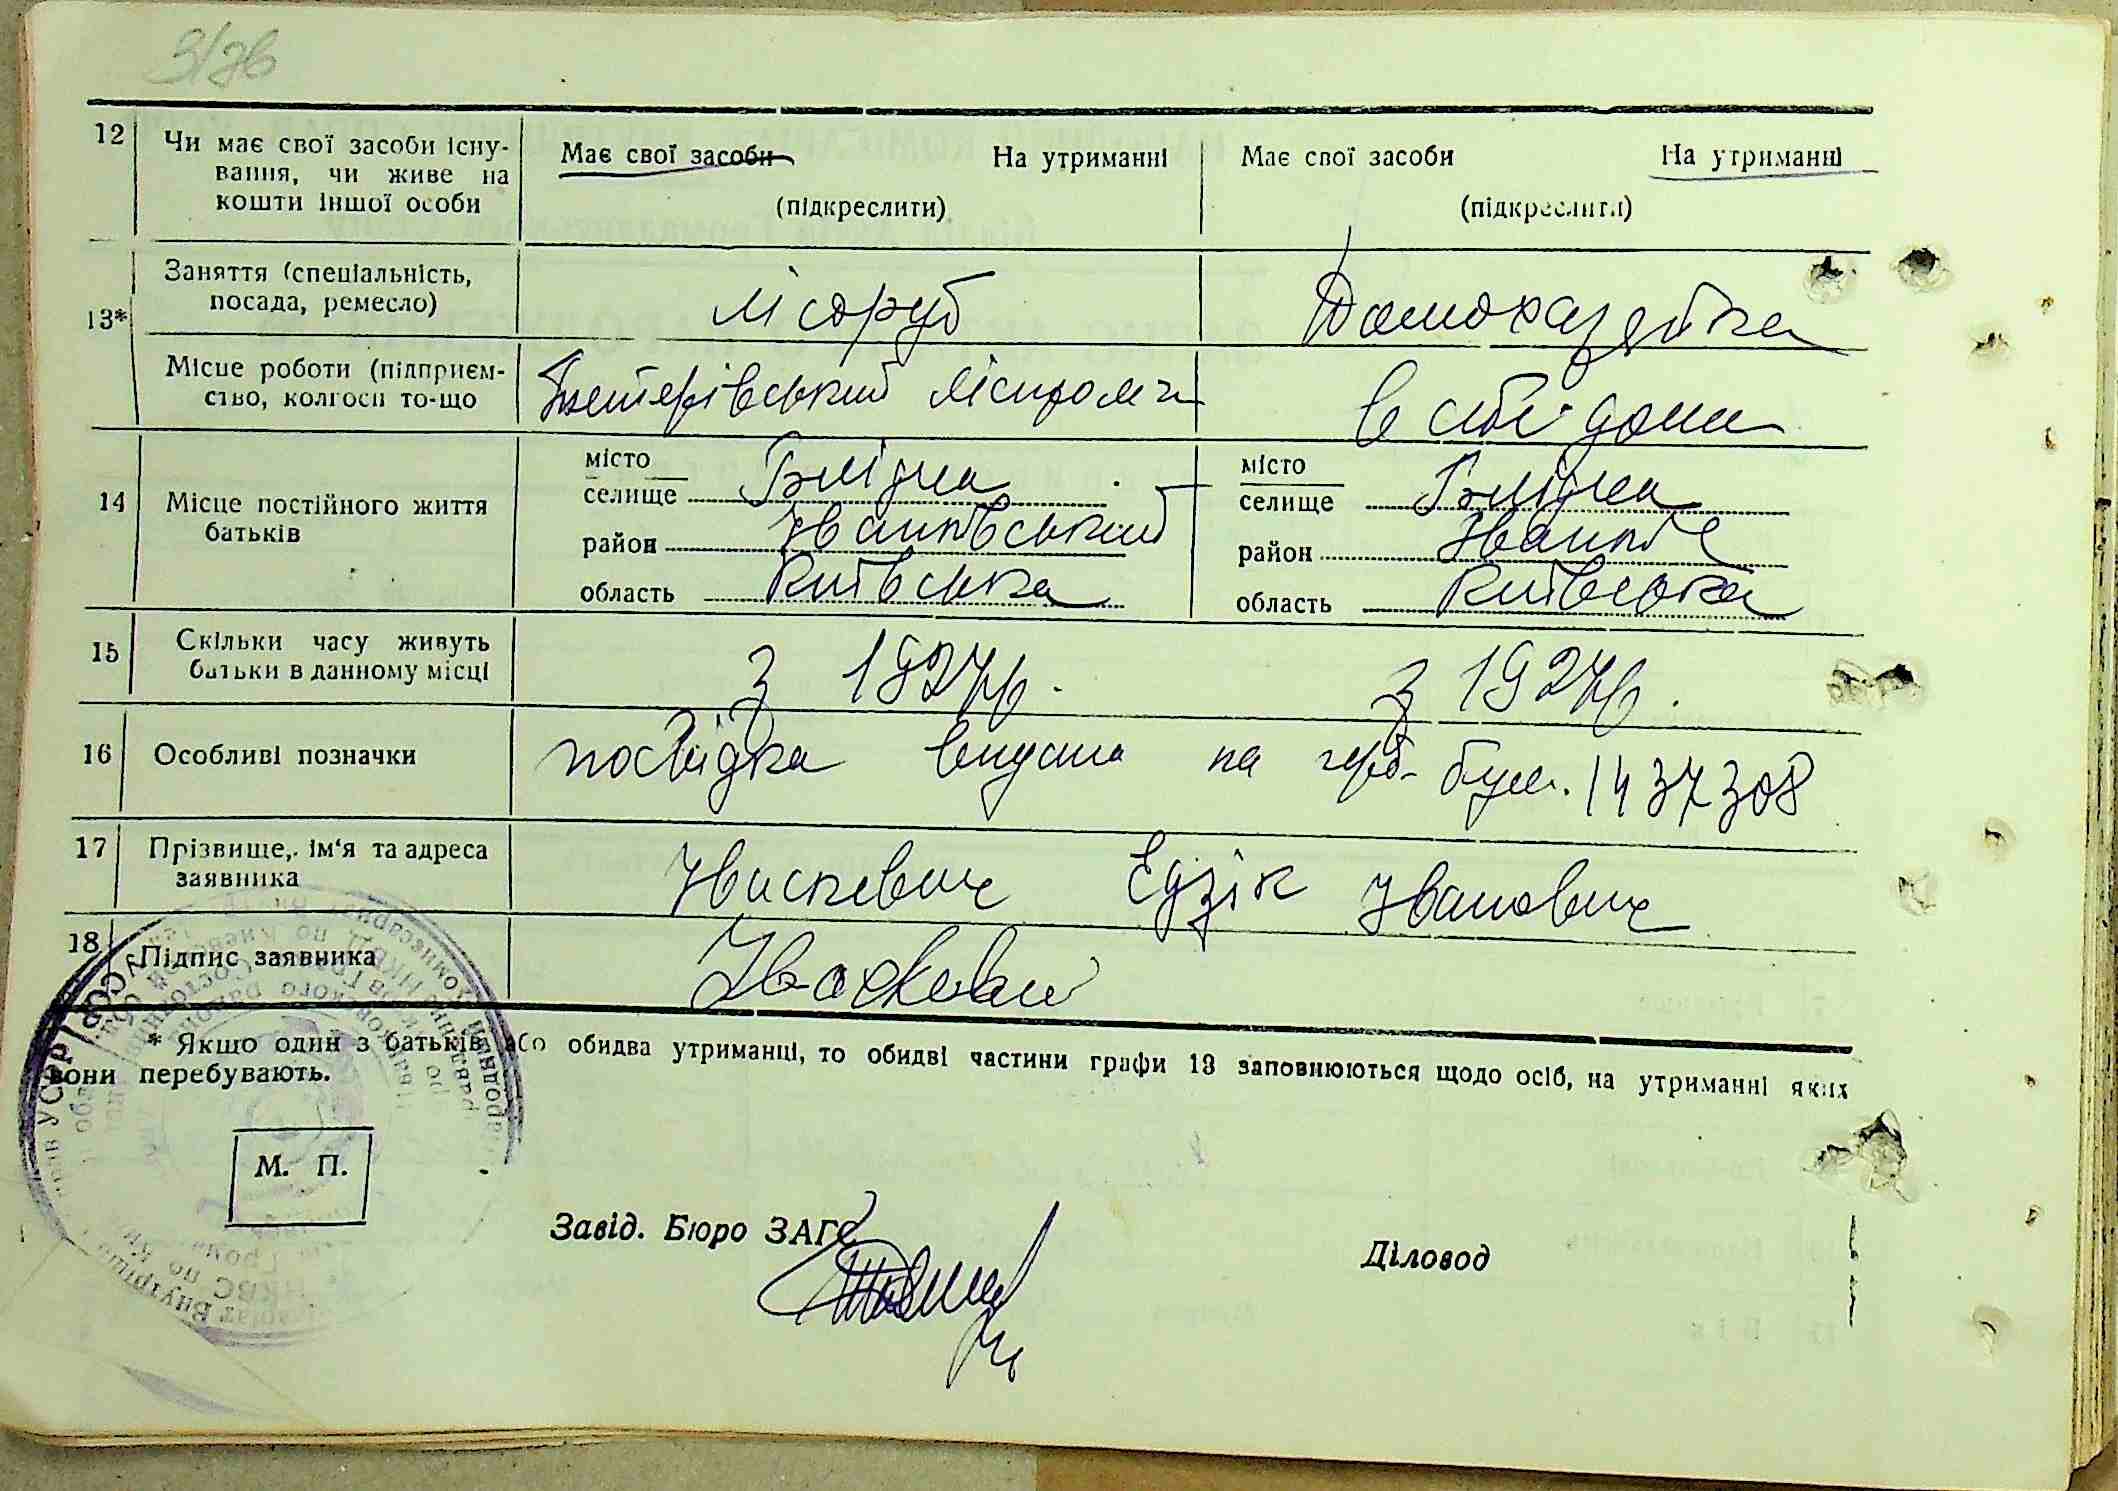 12 Чи має свої засоби існу-
вання, чи живе на
кошти іншої особи
Має свої засоби На утриманні
(підкреслити)
Має свої засоби На утриманні
(підкреслити)
13* Заняття (спеціальність,
посада, ремесло)
лісоруб
Домохазяйка
Місце роботи (підприєм-
ство, колгосп то-що
в своїм домі
14 Місце постійного життя
батьків
місто
селище
район Іванківський
область Київська
місто
селище
район
область Київська
15 Скільки часу живуть
батьки в данному місці
з 1927р.
з 1927р.
16 Особливі позначки
посвідка видана на герб. бум. 1437308
17 Прізвище, ім'я та адреса
заявника
Іваскевич Едзік Іванович
18 Підпис заявника
* Якщо один з батьків або обидва утриманці, то обидві частини графи 13 заповнюються щодо осіб, на утриманні яких
вони перебувають.
М. П.
Завід. Бюро ЗАГС
Діловод